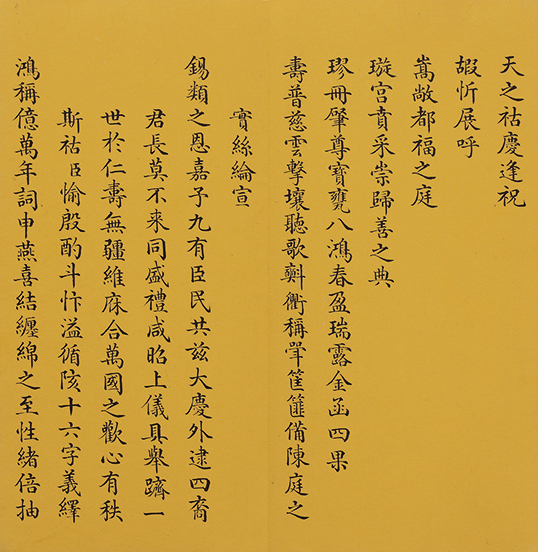 天之祜慶逢祝
嘏忻展呼
嵩敞都福之庭
璇宮賁采崇歸善之典
璆冊肇尊寶甕八鴻春盈瑞露金函四果
壽普慈雲擊壤聽歌衢稱斝筐篚備陳庭之
實絲綸宣
錫類之恩嘉予九有臣民共茲大慶外逮四裔
君長莫不來同盛禮咸昭上儀具舉躋一
世於仁壽無疆維庥合萬國之歡心有秩
斯祜臣愉殷酌斗忭溢循陔十六字義繹
鴻稱億萬年詞申燕喜結纏綿之至性緒倍抽